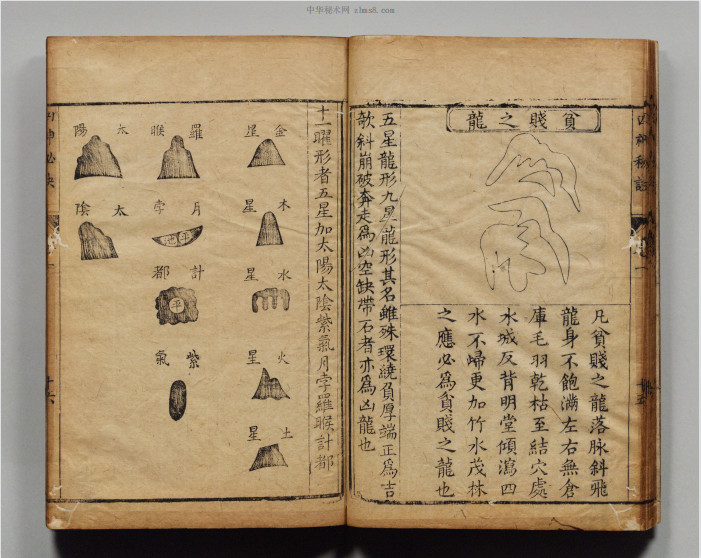 中华秘术网 zhms8.com
貧賤之龍
凡貧賤之龍落脉斜飛
龍身不飽滿左右無倉
庫毛羽乾枯至結穴處
水城反背明堂傾瀉四
水不歸更加竹水茂林
之應必爲貧賤之龍也
五星龍形九星龍形其名雖殊環繞負厚端正爲吉
欹斜崩破奔走爲凶空缺帶石者亦爲凶龍也
十一曜形者五星加太陽太陰紫氣月孛羅睺計都
金星
木星
水星
火星
土星
羅睺
月孛
平池
計都
平
紫氣
太陽
太陰